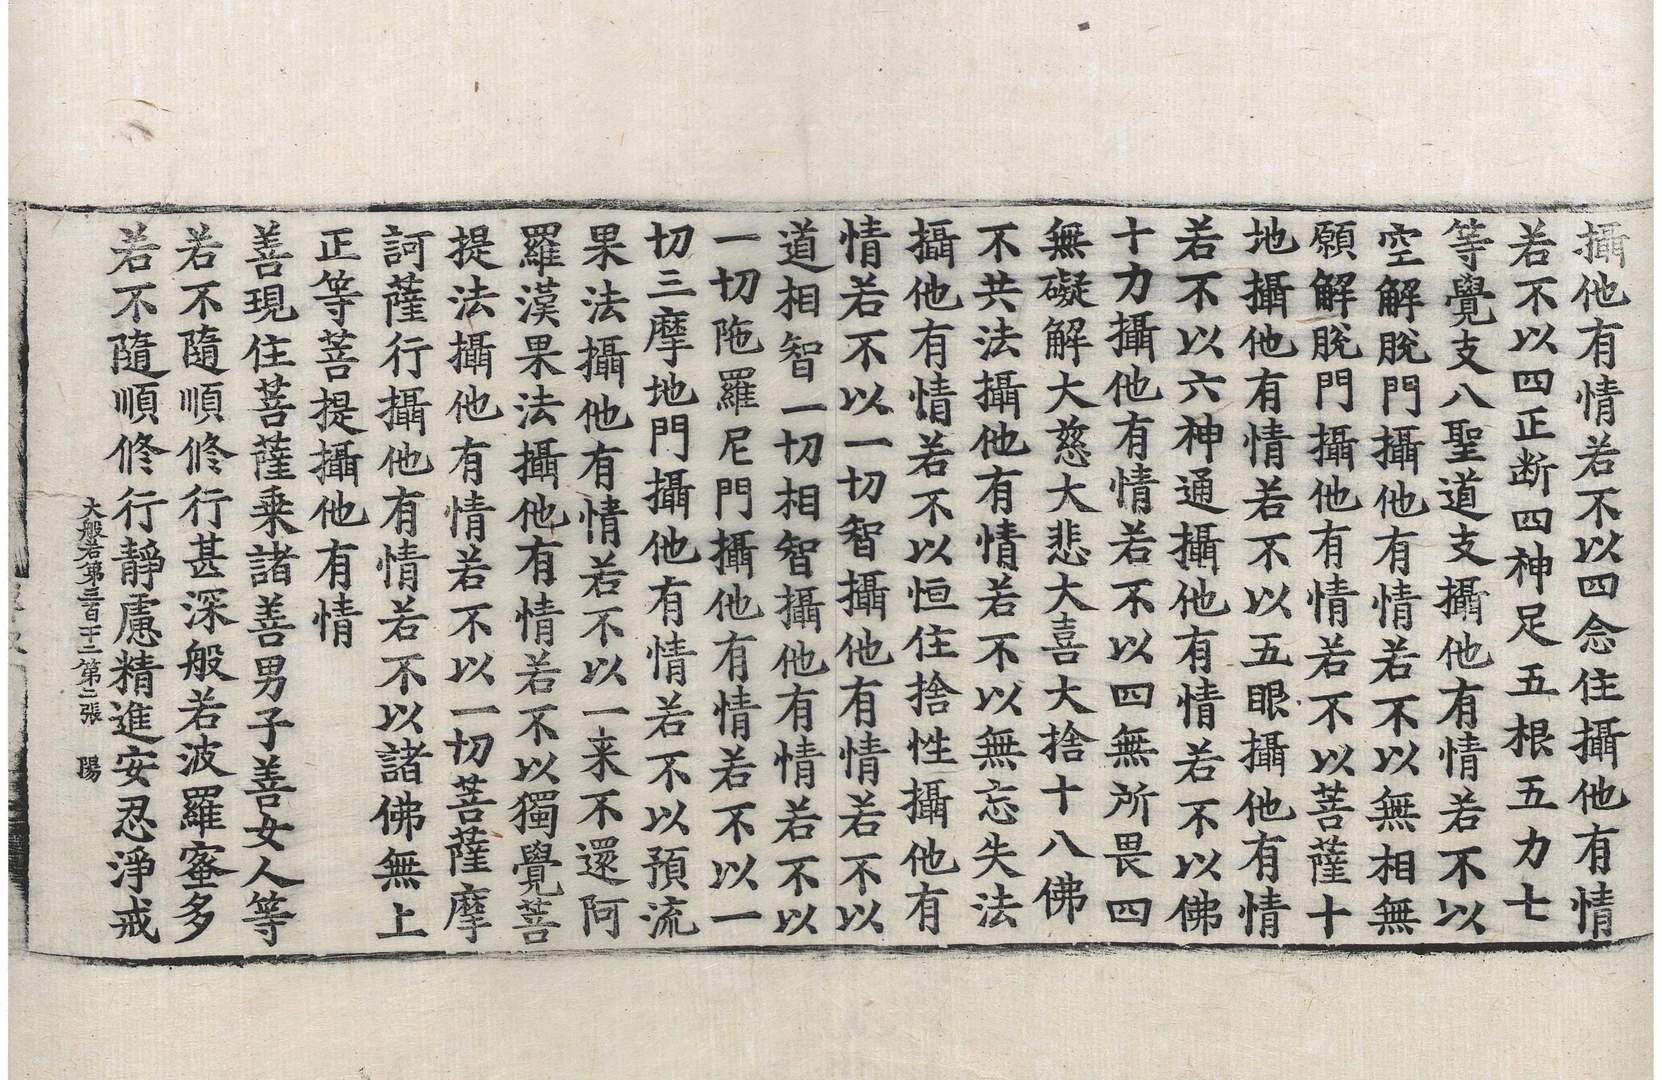 攝他有情若不以四念住攝他有情
若不以四正断四神足五根五力七
等覺支八聖道支攝他有情若不以
空解脫門攝他有情若不以無相無
願解脫門攝他有情若不以菩薩十
地攝他有情若不以五眼攝他有情
若不以六神通攝他有情若不以佛
十力攝他有情若不以四無所畏四
無礙解大慈大悲大喜大捨十八佛
不共法攝他有情若不以無忘失法
攝他有情若不以恒住捨性攝他有
情若不以一切智攝他有情若不以
道相智一切相智攝他有情若不以
一切陁羅尼門攝他有情若不以一
切三摩地門攝他有情若不以預流
果法攝他有情若不以一来不還阿
羅漢果法攝他有情若不以獨覺菩
提法攝他有情若不以一切菩薩摩
訶薩行攝他有情若不以諸佛無上
正等菩提攝他有情
善現住菩薩乘諸善男子善女人等
若不隨順修行甚深般若波羅蜜多
若不隨順修行靜慮精進安忍淨戒
大般若第三百十二第二張 陽